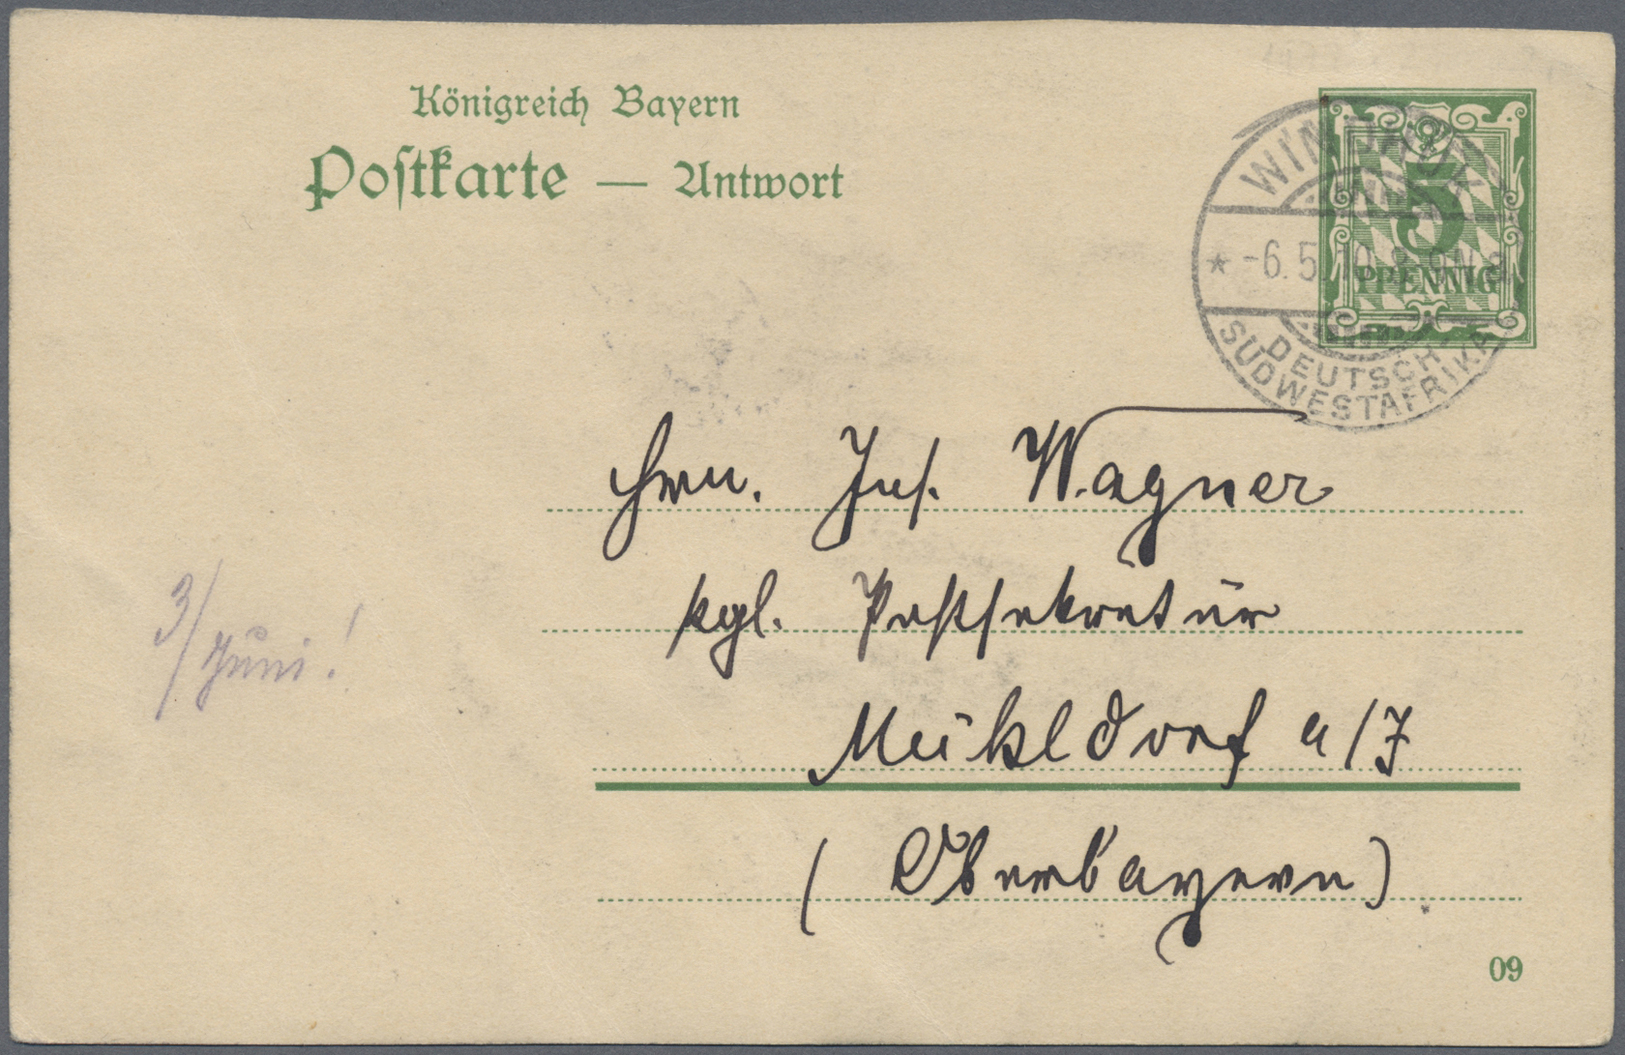 Königreich Bayern
Postkarte — Antwort
5
PFENNIG
WINDHUK
* -6.5.10.
DEUTSCH
SÜDWESTAFRIKA
Hrn. Jos. Wagner
kgl. Postsekretär
Mühldorf a/J
(Oberbayern)
3/Juni!
09